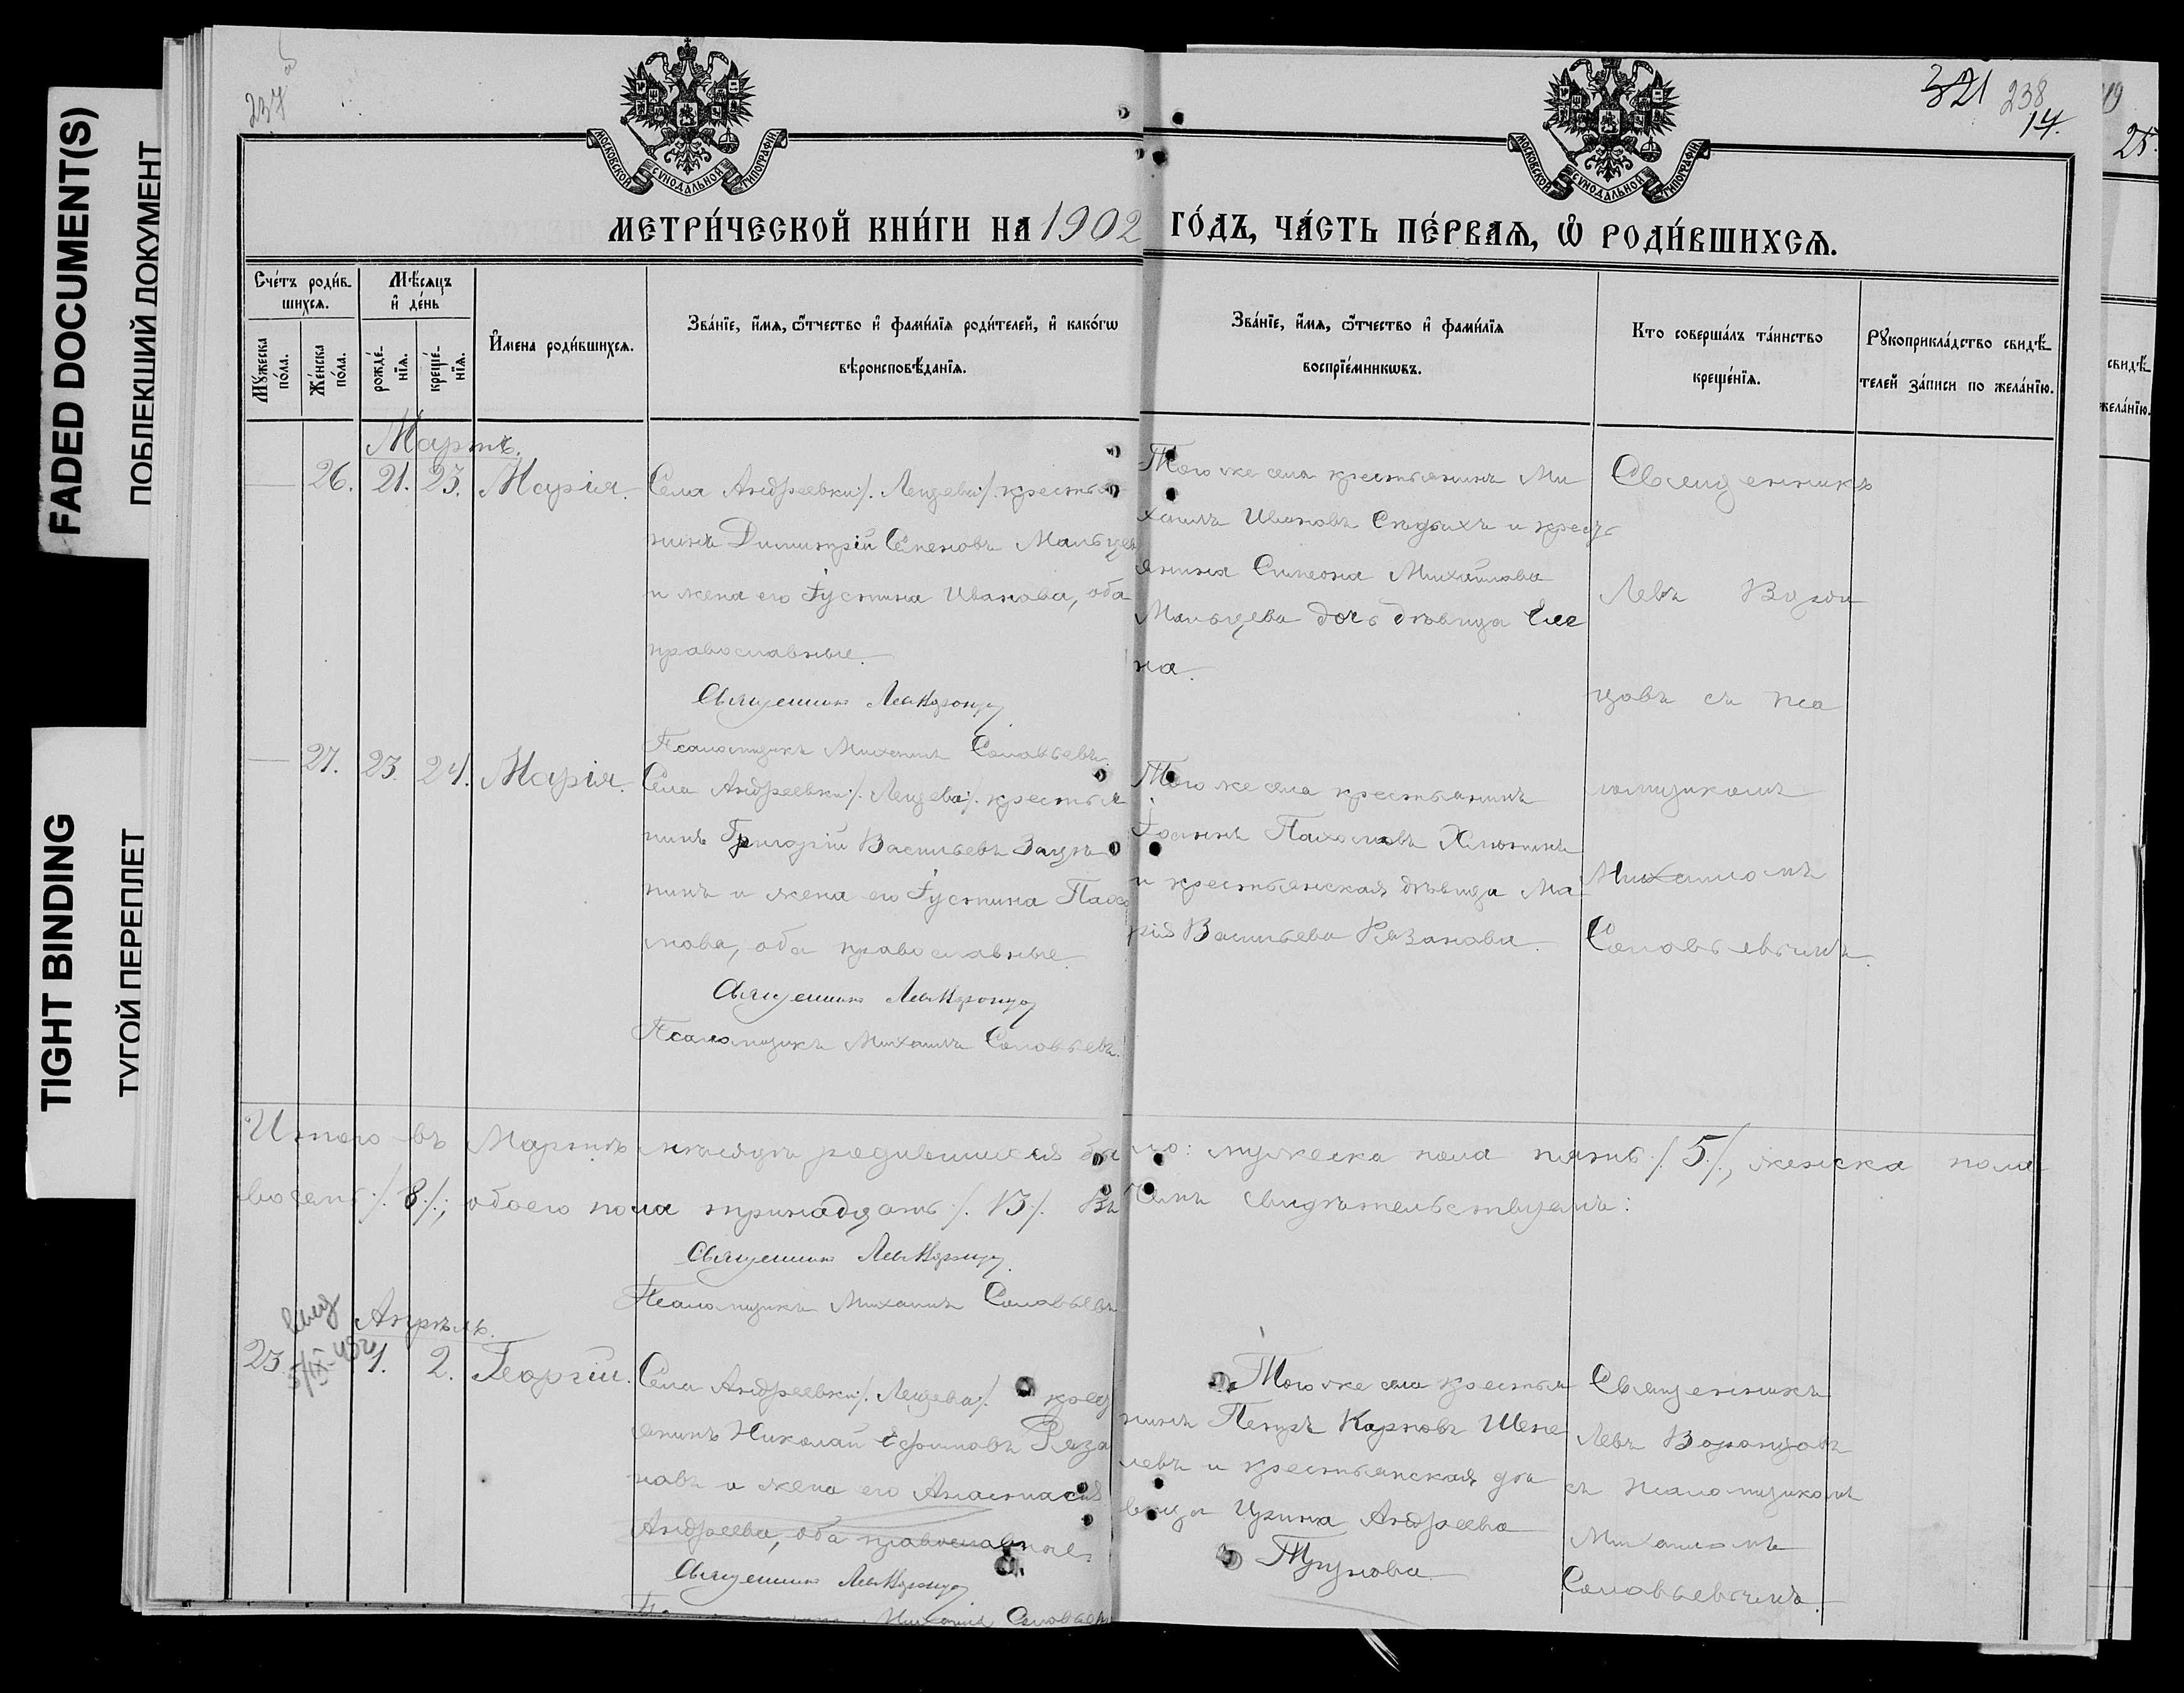 FADED DOCUMENT(S)
ПОБЛЕКШИЙ ДОКУМЕНТ
TIGHT BINDING
ТУГОЙ ПЕРЕПЛЕТ
237
321 238
14.
25.
МОСКОВСКОЙ СѴНОДАЛЬНОЙ ТИПОГРАФІИ
МОСКОВСКОЙ СѴНОДАЛЬНОЙ ТИПОГРАФІИ
МЕТРИ́ЧЕСКОЙ КНИ́ГИ НА 1902 ГО́ДЪ, ЧА́СТЬ ПЕ́РВАѦ, Ѡ҆ РОДИ́ВШИХСѦ.
Сче́тъ роди́в-
шихсѧ.
Мꙋ́жеска по́ла.
Же́нска по́ла.
Мѣ́сѧцъ
и҆ де́нь
рожде́-нїѧ.
креще́-нїѧ.
И҆мена роди́вшихсѧ.
Зва́нїе, и҆́мѧ, ѻ҆́тчество и҆ фами́лїѧ роди́телей, и҆ како́гѡ
вѣроисповѣ́данїѧ.
Зва́нїе, и҆́мѧ, ѻ҆́тчество и҆ фами́лїѧ
воспрїе́мникѡвъ.
Кто соверша́лъ та́инство
креще́нїѧ.
Рꙋкоприкла́дство свидѣ́-
телей за́писи по жела́нїю.
свидѣ́-
жела́нїю.
Мартъ.
26. 21. 23. Марія.
Села Андреевки /. Лещева /. крестья-
нинъ Димитрій Семеновъ Мальцев
и жена его Іустина Иванова, оба
православные.
Священникъ Левъ Воронцов
Псаломщикъ Михаилъ Соловьевъ.
Того же села крестьянинъ Ми
хаилъ Ивановъ и кресть
янина Симеона Михайлова
Мальцева дочь дѣвица Еле
на.
Священникъ
Левъ Ворон
цовъ съ пса
ломщикомъ
Михаиломъ
Соловьевымъ.
27. 23. 24. Марія.
Села Андреевки /. Лещева /. крестья
нинъ Григорій Васильевъ
нинъ и жена его Іустина Пахо
мова, оба православные.
Священникъ Левъ Воронцов
Псаломщикъ Михаилъ Соловьевъ.
Того же села крестьянинъ
Іоаннъ Пахомовъ
и крестьянская дѣвица Ма
рія Васильева Рязанова.
Итого въ Мартѣ мѣсяцѣ родившихся было: мужеска пола пять /. 5 /., женска пола
восемь /. 8 /.; обоего пола тринадцать /. 13 /. Въ чемъ свидѣтельствуемъ:
Священникъ Левъ Воронцов
Псаломщикъ Михаилъ Соловьевъ
Апрѣль.
23. 1. 2. Георгій.
Села Андреевки /. Лещева /. крест
янинъ Николай Ефимовъ Ряза
новъ и жена его Анастасія
Андреева, оба православные.
Священникъ Левъ Воронцов
Михаилъ Соловьевъ
Того же села крестья
нинъ Петръ Карповъ Шепе
левъ и крестьянская дѣ
вица Ирина Андреева
Трунова.
Священникъ
Левъ Воронцовъ
съ псаломщикомъ
Михаиломъ
Соловьевымъ.